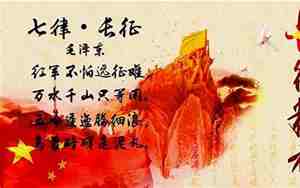 七律·长征
毛泽东
红军不怕远征难，
万水千山只等闲。
五岭逶迤腾细浪，
乌蒙磅礴走泥丸。